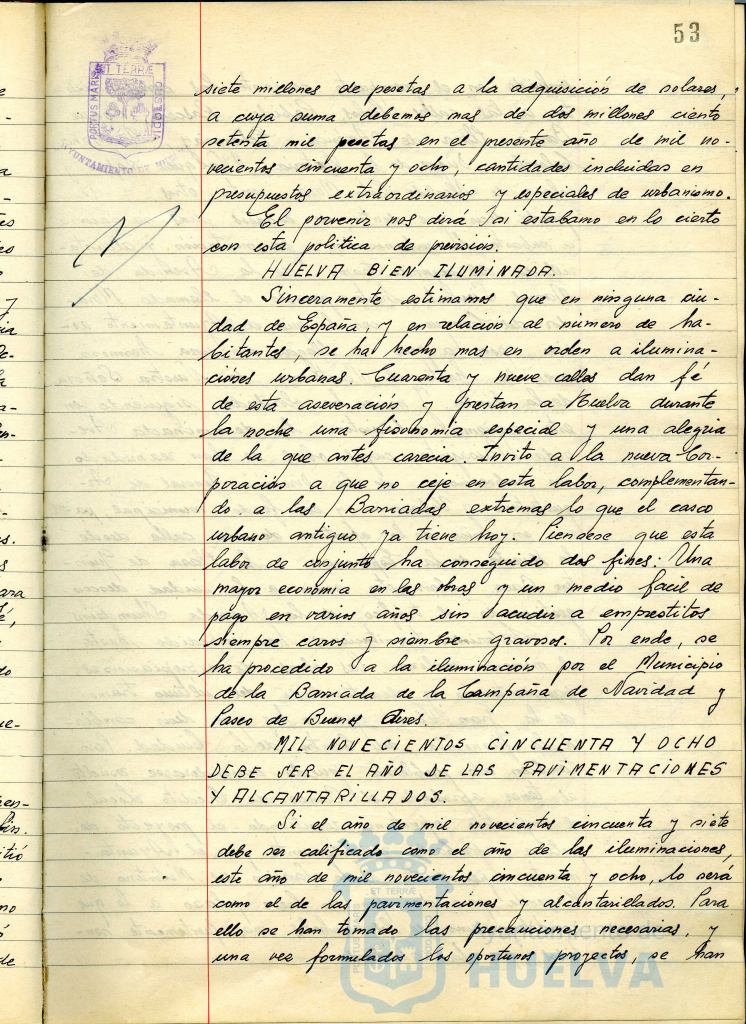 53
ET TERRÆ
PORTUS MARIS
CUSTODIA
AYUNTAMIENTO DE
siete millones de pesetas a la adquisición de solares,
a cuya suma debemos mas de dos millones ciento
setenta mil pesetas en el presente año de mil no-
vecientos cincuenta y ocho, cantidades incluidas en
presupuestos extraordinarios y especiales de urbanismo.
El porvenir nos dirá si estabamo en lo cierto
con esta politica de previsión.
HUELVA BIEN ILUMINADA.
Sinceramente estimamos que en ninguna ciu-
dad de España, y en relación al número de ha-
bitantes, se ha hecho mas en orden a ilumina-
ciónes urbanas. Cuarenta y nueve calles dan fé
de esta aseveración y prestan a Huelva durante
la noche una fisonomia especial y una alegria
de la que antes carecia. Invito a la nueva Cor-
poración a que no ceje en esta labor, complementan-
do a las Barriadas extremas lo que el casco
urbano antiguo ya tiene hoy. Piensese que esta
labor de conjunto ha conseguido dos fines: Una
mayor economia en las obras y un medio facil de
pago en varios años sin acudir a emprestitos
siempre caros y siembre gravosos. Por ende, se
ha procedido a la iluminación por el Municipio
de la Barriada de la Campaña de Navidad y
Paseo de Buenos Aires.
MIL NOVECIENTOS CINCUENTA Y OCHO
DEBE SER EL AÑO DE LAS PAVIMENTACIONES
Y ALCANTARILLADOS.
Si el año de mil novecientos cincuenta y siete
debe ser calificado como el año de las iluminaciones,
este año de mil novecientos cincuenta y ocho, lo será
como el de las pavimentaciones y alcantarillados. Para
ello se han tomado las precauciones necesarias, y
una vez formulados los oportunos proyectos, se han
HUELVA